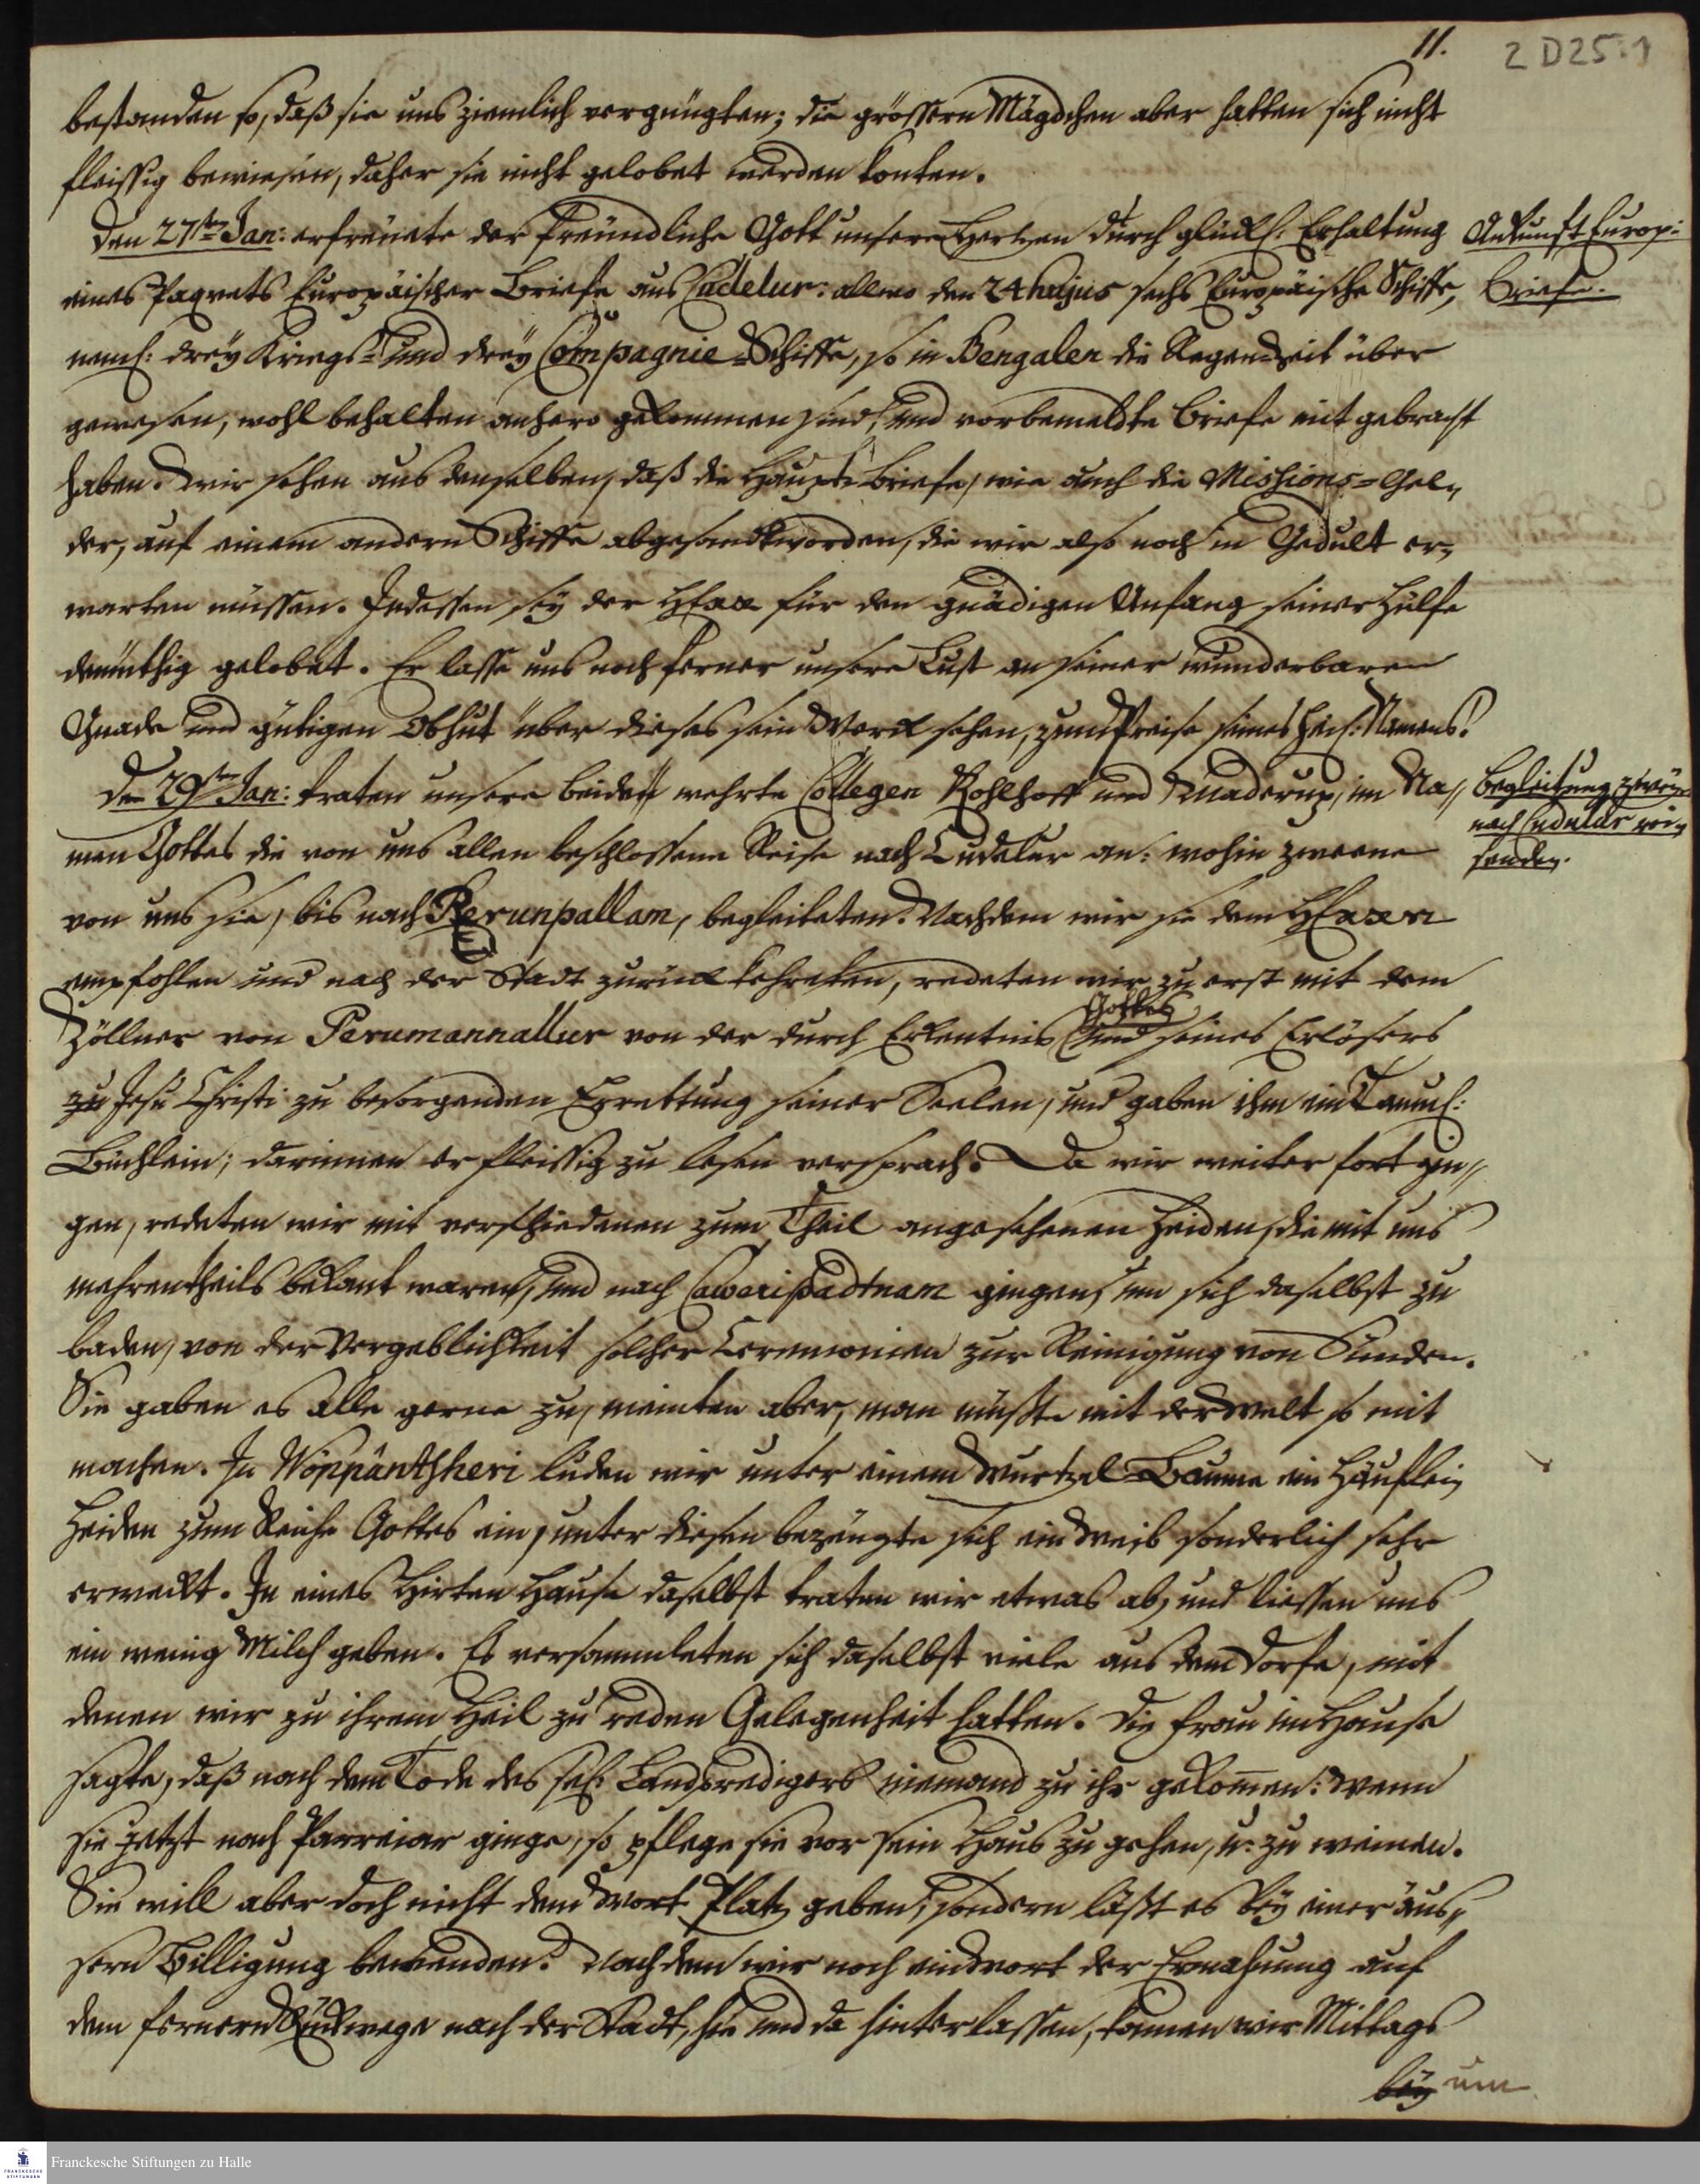 11.
2 D25:1
bestanden so, daß sie uns ziemlich vergnügten; die grössern Mägdchen aber hatten sich nicht
fleissig bewiesen, daher sie nicht gelobet werden konten.
Den 27ten Jan: erfreuete der freundliche Gott unsere Hertzen durch glückl: Erhaltung
Ankunft Europ:
Briefe.
eines Paqvets Europäischer Briefe aus Cudelur: allwo den 24 hujus sechs Europäische Schiffe,
neml: drey Kriegs- und drey Compagnie-Schiffe, so in Bengalen die Regenzeit über
gewesen, wohl behalten anhero gekommen sind, und vorbemeldte Briefe mit gebracht
haben. Wir sehen aus denselben, daß die Haupt-Briefe, wie auch die Missions-Gel-
der, auf einem andern Schiffe abgesandt worden, die wir also noch in Gedult er-
warten müssen. Indessen sey der HErr für den gnädigen Anfang seiner Hülfe
demüthig gelobet. Er lasse uns noch ferner unsere Lust an seiner wunderbaren
Gnade und gütigen Obhut über dieses sein Werck sehen, zum Preise seines heil: Namens!
Den 29ten Jan: traten unsere beiden wehrte Collegen Kohlhoff und Maderup, im Na-
Begleitung zweyer
nach Cudulur rei-
senden.
men Gottes die von uns allen beschlossene Reise nach Cudelur an: wohin zweene
von uns sie, bis nach Perunpallam, begleiteten. Nachdem wir sie dem HErrn
empfohlen und nach der Stadt zurück kehreten, redeten wir zu erst mit dem
Zöllner von Perumannallur von der durch Erkentnis Gottes und seines Erlösers
zu Jesu Christi zu besorgenden Errettung seiner Seelen, und gaben ihm ein Tamul:
Büchlein; darinnen er fleissig zu lesen versprach. Da wir weiter fort gin-
gen, redeten wir mit verschiedenen zum Theil angesehenen Heiden, die mit uns
mehrentheils bekant waren, und nach Caweripadtnam gingen, um sich daselbst zu
baden, von der Vergeblichkeit solcher Ceremonien zur Reinigung von Sünden.
Sie gaben es alle gerne zu, meinten aber, man müßte mit der Welt so mit
machen. In Wöppântscheri luden wir unter einem Wurtzel-Baume ein Häuflein
Heiden zum Reiche Gottes ein, unter diesen bezeugte sich ein Weib sonderlich sehr
erweckt. In eines Hirten Hause daselbst traten wir etwas ab, und liessen uns
ein wenig Milch geben. Es versammleten sich daselbst viele aus dem Dorfe, mit
denen wir zu ihrem Heil zu reden Gelegenheit hatten. Die Frau im Hause
sagte, daß nach dem Tode des sel: Landpredigers niemand zu ihr gekom̄en: wenn
sie jetzt nach Parreiar ginge, so pflege sie vor sein Haus zu gehen, u: zu weinen.
Sie will aber doch nicht dem Wort Platz geben, sondern läßt es bey einer äus-
sern Billigung bewenden. Nachdem wir noch ein Wort der Ermahnung auf
dem fernern Rückwege nach der Stadt, hie und da hinterlassen, kamen wir Mittags
bey um
Franckesche Stiftungen zu Halle